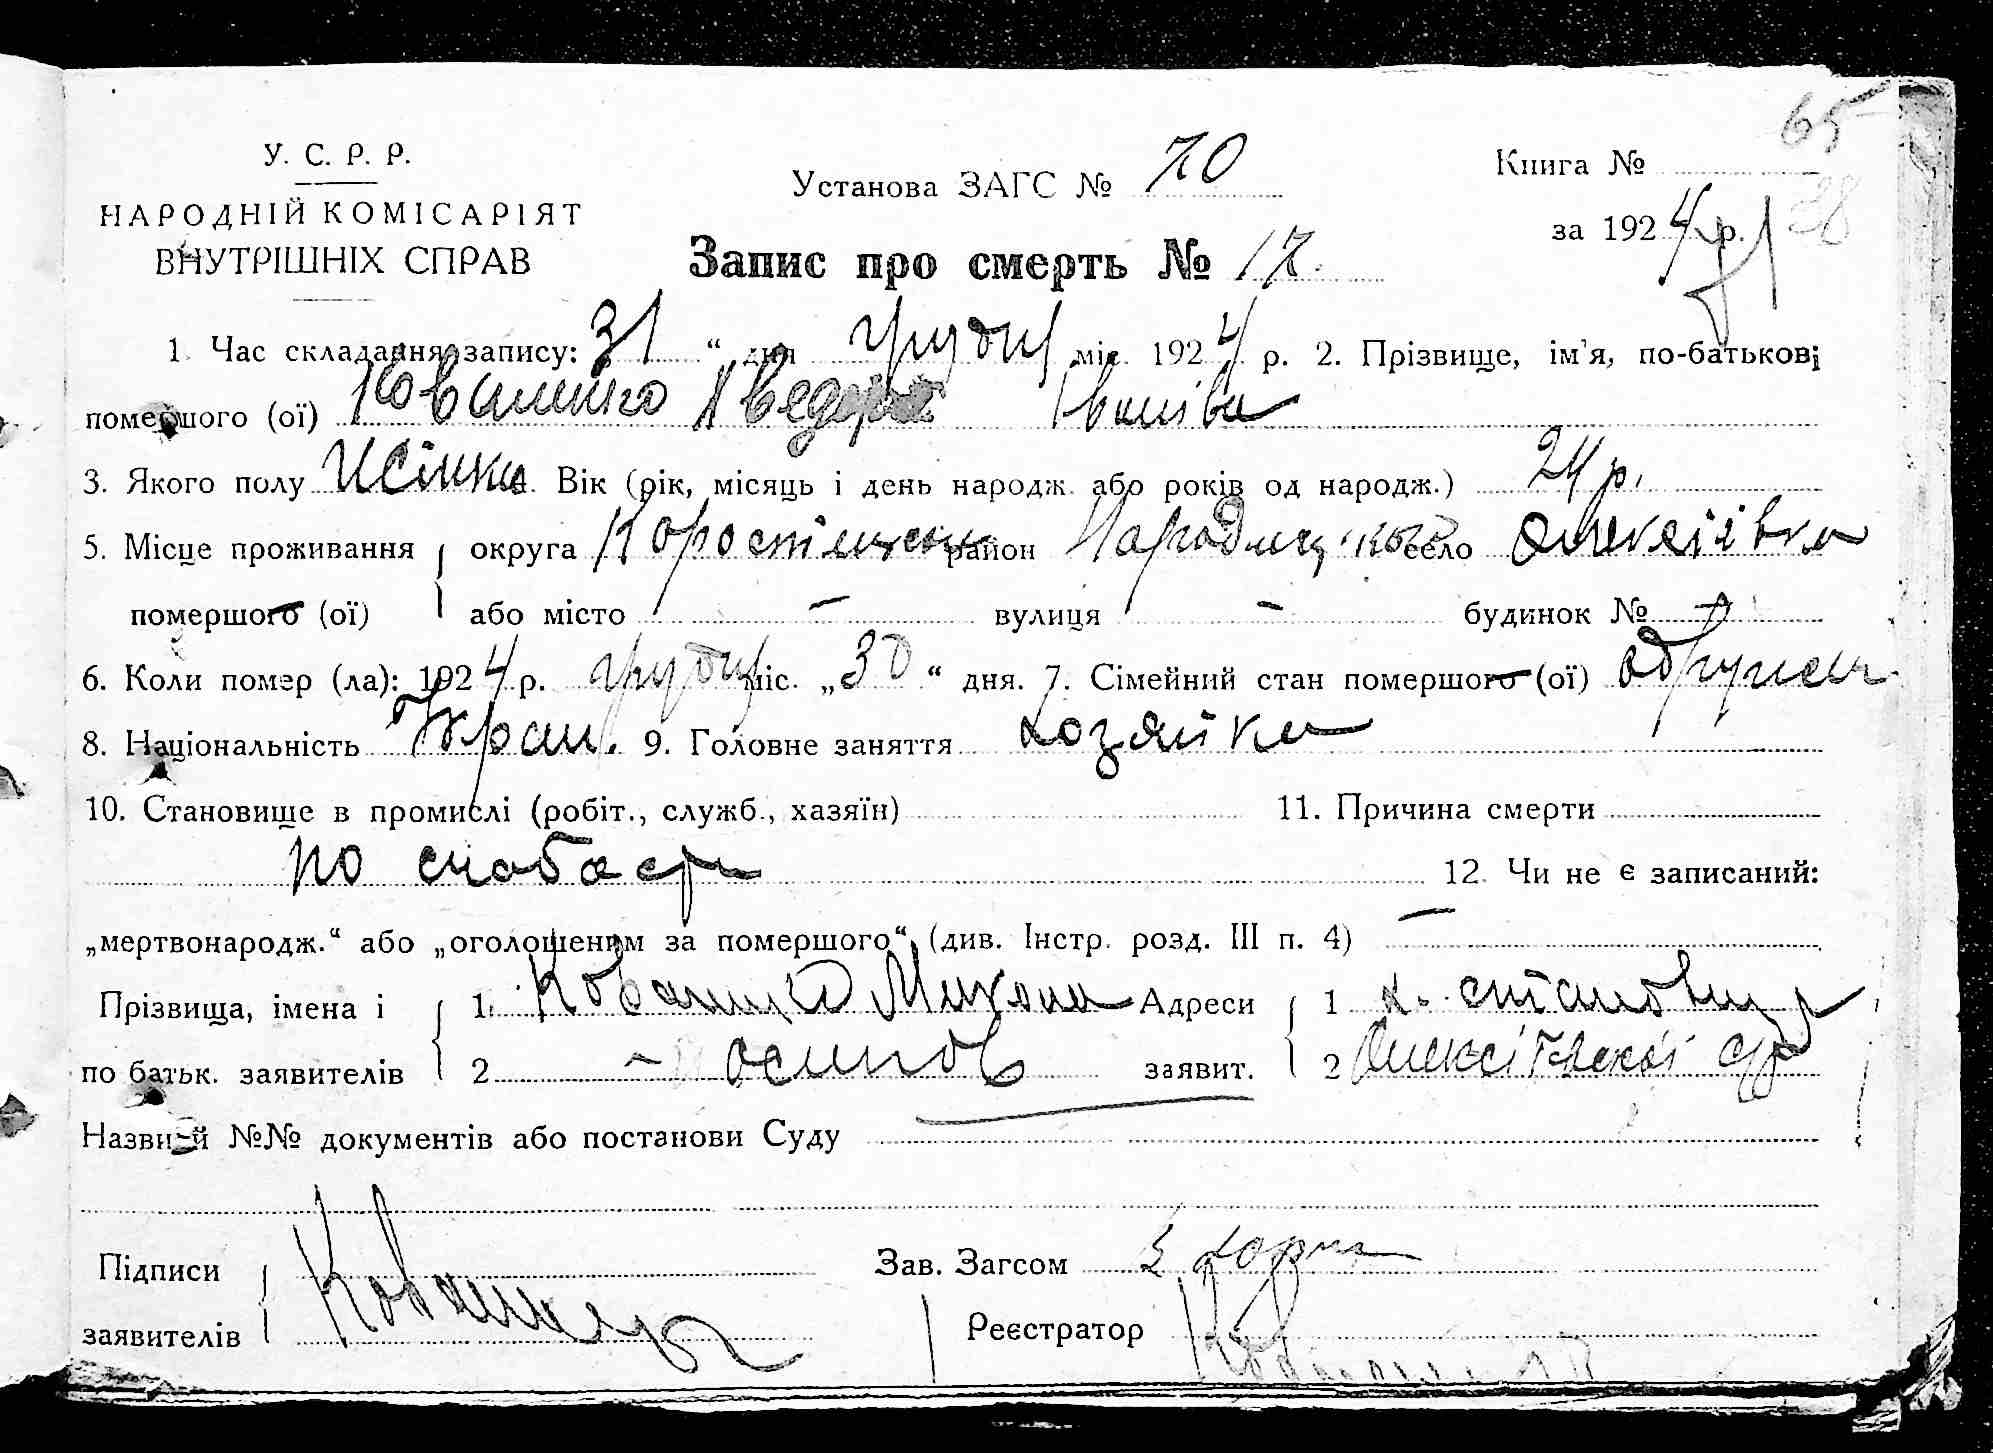 65
У. С. Р. Р.
НАРОДНІЙ КОМІСАРІЯТ
ВНУТРІШНІХ СПРАВ
Установа ЗАГС № 70
Книга №
38
за 1924 р.
Запис про смерть № 17.
1. Час складання запису: 31 “ дня грудня міс. 1924 р. 2. Прізвище, ім'я, по-батькові
помершого (ої) Коваленко Іванівна
3. Якого полу жінка. Вік (рік, місяць і день народж. або років од народж.) 24 р.
5. Місце проживання округа Коростенська район Народицький село Олексіївка
помершого (ої) або місто – вулиця – будинок №
6. Коли помер (ла): 1924 р. грудня міс. „30 “ дня. 7. Сімейний стан помершого (ої)
8. Національність Украін. 9. Головне заняття хозяйка
10. Становище в промислі (робіт., служб., хазяїн) 11. Причина смерти
по слабости 12. Чи не є записаний:
„мертвонародж.“ або „оголошеним за помершого“ (див. Інстр. розд. III п. 4) –
Прізвища, імена і 1. Коваленко Михайло Адреси 1
по батьк. заявителів 2 – Осипов заявит. 2 Олексіївської с/р
Назви й №№ документів або постанови Суду
Підписи
заявителів Коваленко
Зав. Загсом
Реєстратор